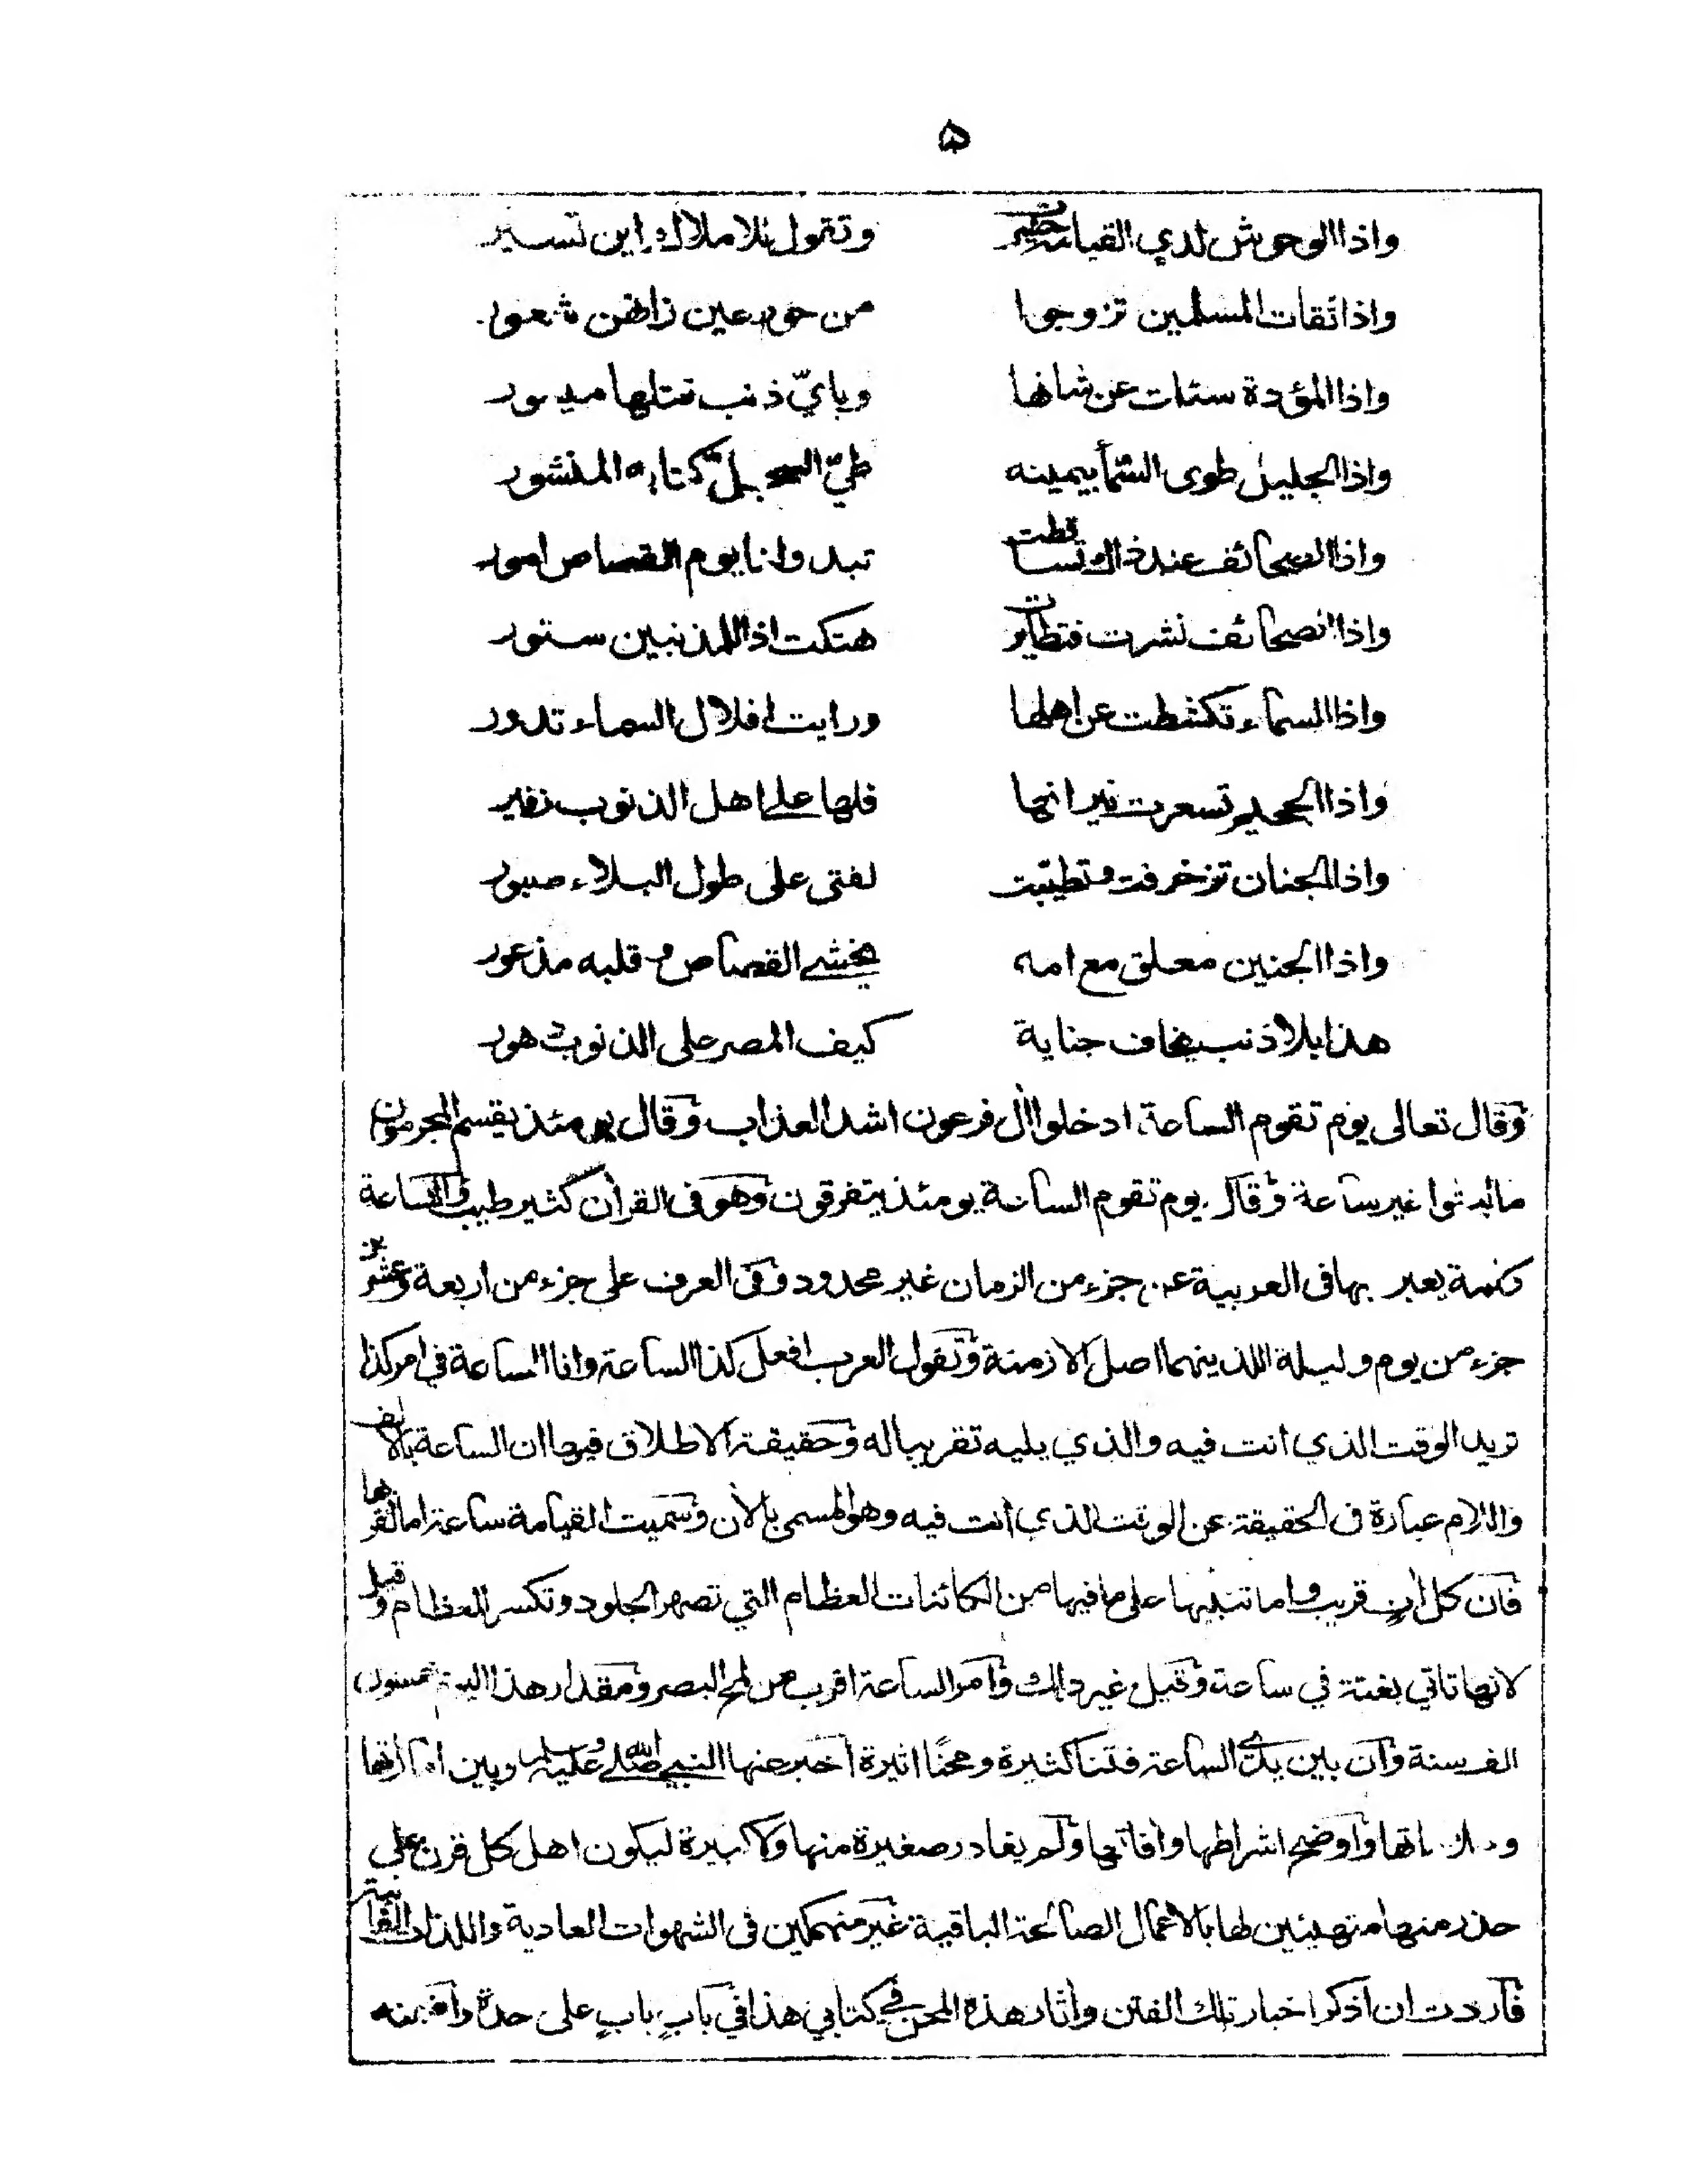 ۵
واذا الوحوش لدي القيامة حشرت وتقول للاملاك اين تسير
واذا تقات المسلمين تزوجوا من حور عين زانهن شعور
واذا المؤدة سئلت عن شانها وباي ذنب قتلها ميسور
واذا الجليل طوى السمأ بيمينه طيّ السجل كتابه المنشور
واذا الصحائف عند ذاك تساقطت تبدو لنا يوم القصاص امور
واذا الصحائف نشرت فتطايرت هتكت اذا للمذنبين ستور
واذا السماء تكشطت عن اهلها ورايت افلاك السماء تدور
واذا الجحيم تسعرت نيرانها فلها على اهل الذنوب زفير
واذا الجنان تزخرفت وتطيّبت لفتى على طول البلاء صبور
واذا الجنين معلق مع امه يخشى القصاص وقلبه مذعور
هذا بلا ذنب يخاف جناية كيف المصر على الذنوب دهور
وقال تعالى يوم تقوم الساعة ادخلوا اٰل فرعون اشد العذاب وقال يومئذ يقسم المجرمون
ما لبثوا غير ساعة وقال يوم تقوم الساعة يومئذ يتفرقون وهو في القراٰن كثير طيب والساعة
كلمة يعبر بها في العربية عن جزء من الزمان غير محدود وفي العرف على جزء من اربعة وعشرين
جزء من يوم وليلة اللذينهما اصل الازمنة وتقول العرب افعل كذا الساعة وانا الساعة في امر كذا
تريد الوقت الذي انت فيه والذي يليه تقريبا له وحقيقة الاطلاق فيها ان الساعة بالالف
واللام عبارة في الحقيقة عن الوقت الذي انت فيه وهو المسمى بالاٰن وسميت القيامة ساعة اما لقربها
فان كل اٰت قريب واما تنبيها على ما فيها من الكائنات العظام التي تصهر الجلود وتكسر العظام وقيل
لانها تاتي بغتة في ساعة وقيل غير ذلك وامر الساعة اقرب من لمح البصر ومقدار هذا اليوم خمسون
الف سنة وان بين يدي الساعة فتنا كثيرة ومحنًا اثيرة اخبر عنها النبي صلى الله عليه وسلم وبين اماراتها
واوضح اشراطها واٰفاتها ولم يغادر صغيرة منها ولا كبيرة ليكون اهل كل قرن على
حذر منها متهيئين لها بالاعمال الصالحة الباقية غير منهمكين في الشهوات العادية واللذات الفانية
فاردت ان اذكر اخبار تلك الفتن واٰثار هذه المحن في كتابي هذا في بابٍ بابٍ على حدة